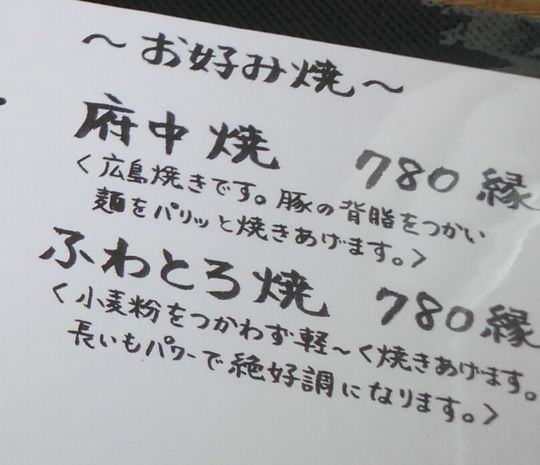 ～お好み焼～
府中焼 780縁
<広島焼きです。豚の背脂をつかい
麺をパリッと焼きあげます。>
ふわとろ焼 780縁
<小麦粉をつかわず軽～く焼きあげます。
長いもパワーで絶好調になります。>